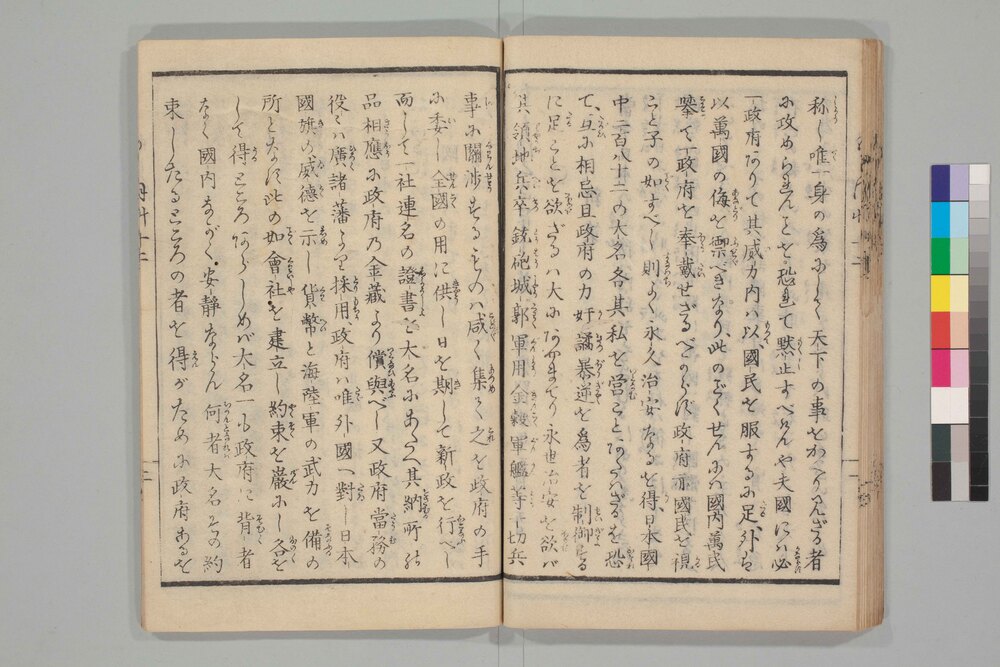 称し唯一身の為にして天下の事をかへりみざる者
に攻められんことを恐れて黙止すべけんや夫國には必
一政府ありて其威力内は以國民を服するに足外は
以萬國の侮を禦べきなり此のごとくせんには國内萬民
挙て一政府を奉戴せざるべからず政府亦國民を視
こと子の如すべし則よく永久治安なるを得日本國
中二百八十二の大名各其私を営こと、あらざるを恐
て互に相忌且政府の力奸譎暴逆を為者を制御する
に足ことを欲ざるは大にあやまてり永世治安を欲ば
其領地兵卒銃砲城郭軍用金穀軍艦等一切兵
事に關渉するものは咸く集て之を政府の手
に委し全國の用に供し日を期して新政を行べし
而して一社連名の證書を大名にあたへ其納所の
品相應に政府乃金藏より償與べし又政府當務の
役々は廣諸藩より採用政府は唯外國へ對し日本
國旗の威德を示し貨幣と海陸軍の武力を備の
所となす此の如會社を建立し約束を嚴にし名を
して得ところあらしめば大名一も政府に背者
なく國内ながく安静ならん何者大名各の約
束したるところの者を得がために政府あるを